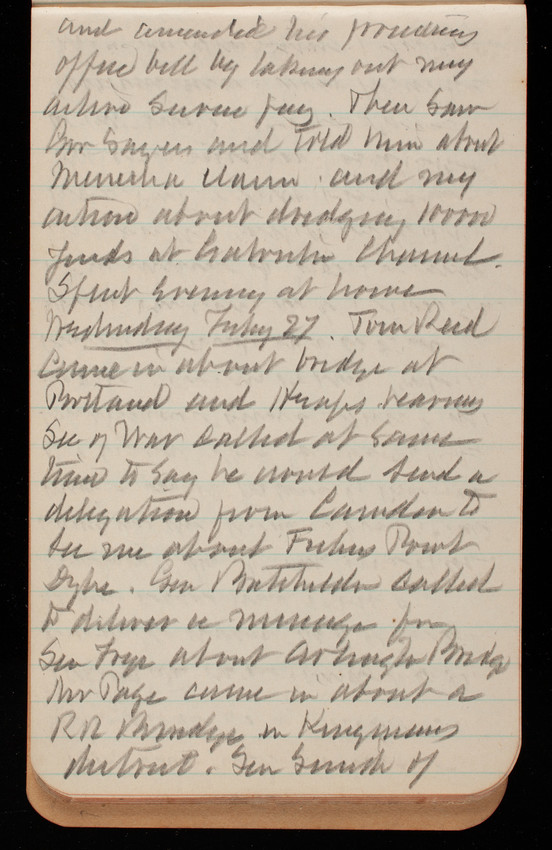 and amended his previous
office bill by taking out my
active service pay. Then saw
Mr Sayers and told him about
Menerha claim and my
action about dredging 10000
funds at Galveston Channel.
Spent evening at home
Wednesday Feby 27. Tom Reed
came in about bridge at
Portland and Heaps
Sec of War called at same
time to say he would send a
delegation from Camden to
see me about Fishers Point
Dyke. Gen Batchelder called
to deliver a message from
Sen Frye about Arlington Bridge
Mr Page came in about a
RR Bridge in Kingmans
district. Gen Smith of